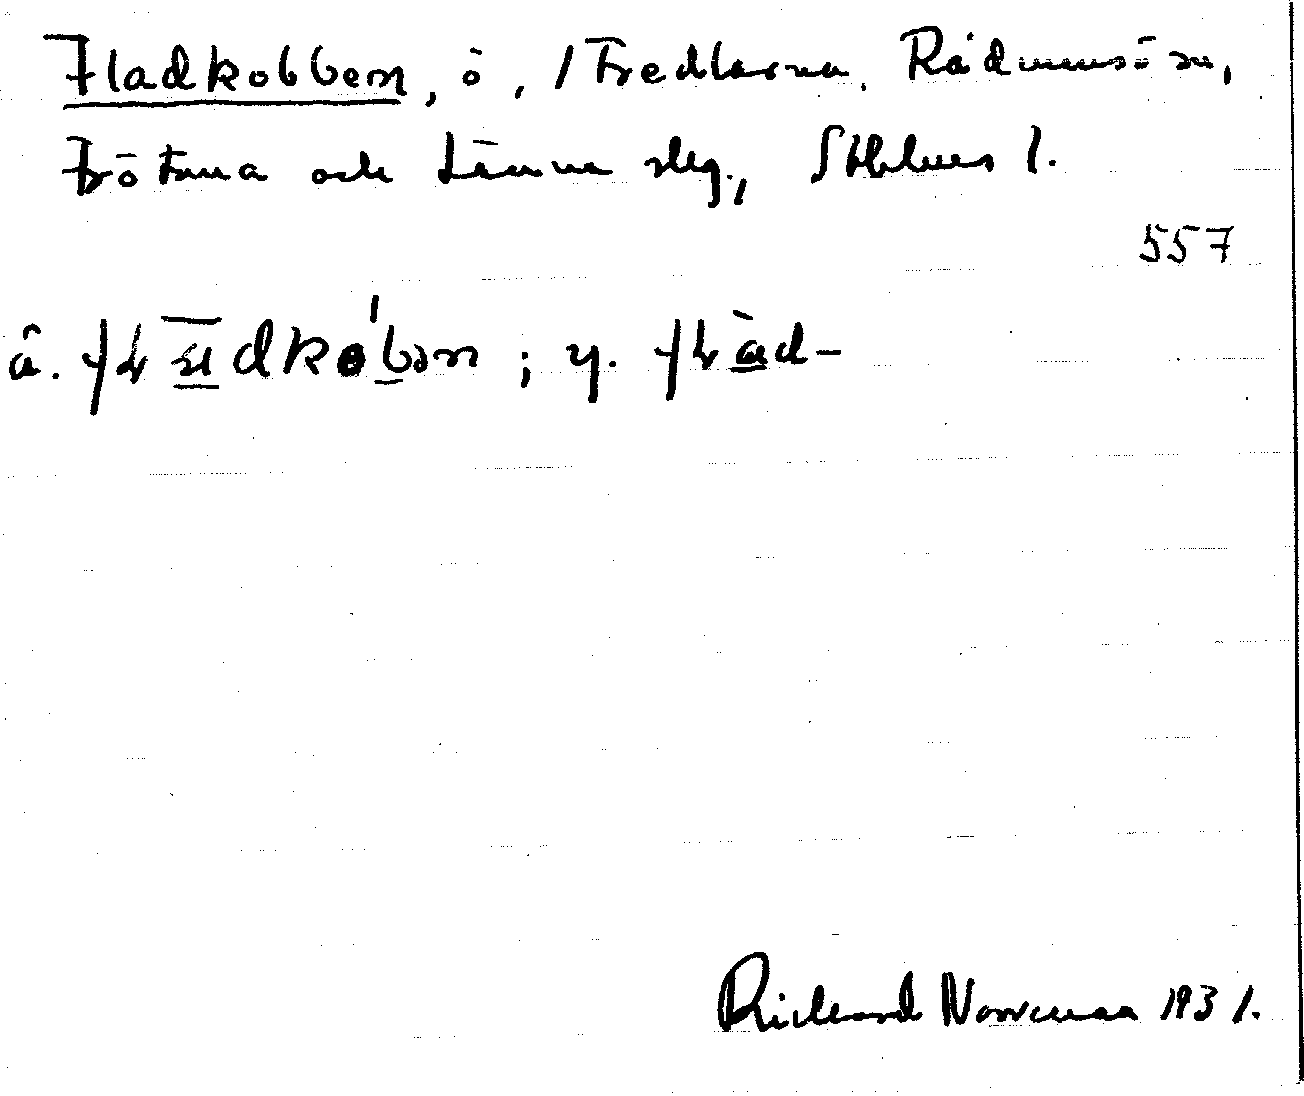 Fladkobben, ö, / Fredlarna, Rådmansö sn,
Frötuna och Länna sklg., Sthlms l.
557
ä. flādkob̲ən ; y. flàd–
Rickard Norrenaa 1931.